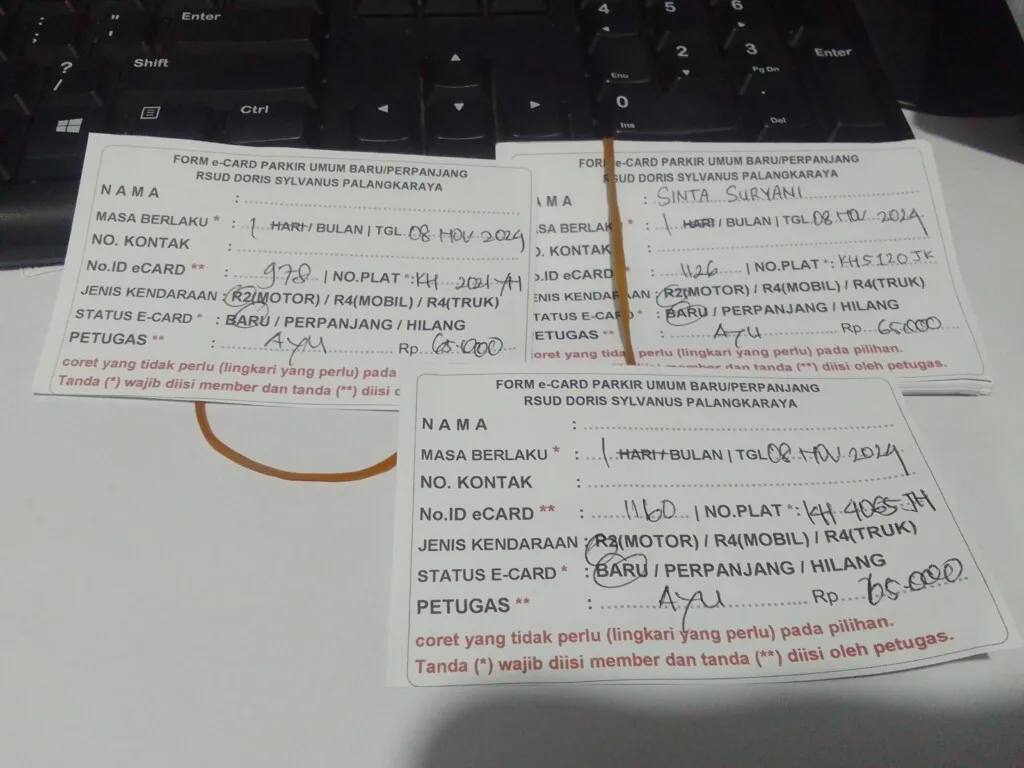 Enter
Shift
Ctrl
? /
; :
4
5
6
2
3 Pg Dn
Enter
0 Ins
Del
FORM e-CARD PARKIR UMUM BARU/PERPANJANG
RSUD DORIS SYLVANUS PALANGKARAYA
NAMA :
MASA BERLAKU * : 1 HARI / BULAN | TGL 08 NOV 2024
NO. KONTAK :
No.ID eCARD ** : 978 | NO.PLAT *: KH 2021 AH
JENIS KENDARAAN : R2(MOTOR) / R4(MOBIL) / R4(TRUK)
STATUS E-CARD * : BARU / PERPANJANG / HILANG
PETUGAS ** : AYU Rp 65.000
coret yang tidak perlu (lingkari yang perlu) pada
Tanda (*) wajib diisi member dan tanda (**) diisi
FORM e-CARD PARKIR UMUM BARU/PERPANJANG
RSUD DORIS SYLVANUS PALANGKARAYA
MA : SINTA SURYANI
SA BERLAK * : 1 HARI / BULAN | TGL 08 NOV 2024
O. KONTAK :
o.ID eCARD * : 1126 | NO.PLAT *: KH 5120 JK
ENIS KENDARAAN : R2(MOTOR) / R4(MOBIL) / R4(TRUK)
STATUS E-CARD * : BARU / PERPANJANG / HILANG
PETUGAS ** : AYU Rp 65.000
coret yang tidak perlu (lingkari yang perlu) pada pilihan.
member dan tanda (**) diisi oleh petugas.
FORM e-CARD PARKIR UMUM BARU/PERPANJANG
RSUD DORIS SYLVANUS PALANGKARAYA
NAMA :
MASA BERLAKU * : 1 HARI / BULAN | TGL 08 NOV 2024
NO. KONTAK :
No.ID eCARD ** : 1160 | NO.PLAT *: KH 4065 JH
JENIS KENDARAAN : R2(MOTOR) / R4(MOBIL) / R4(TRUK)
STATUS E-CARD * : BARU / PERPANJANG / HILANG
PETUGAS ** : AYU Rp 65.000
coret yang tidak perlu (lingkari yang perlu) pada pilihan.
Tanda (*) wajib diisi member dan tanda (**) diisi oleh petugas.